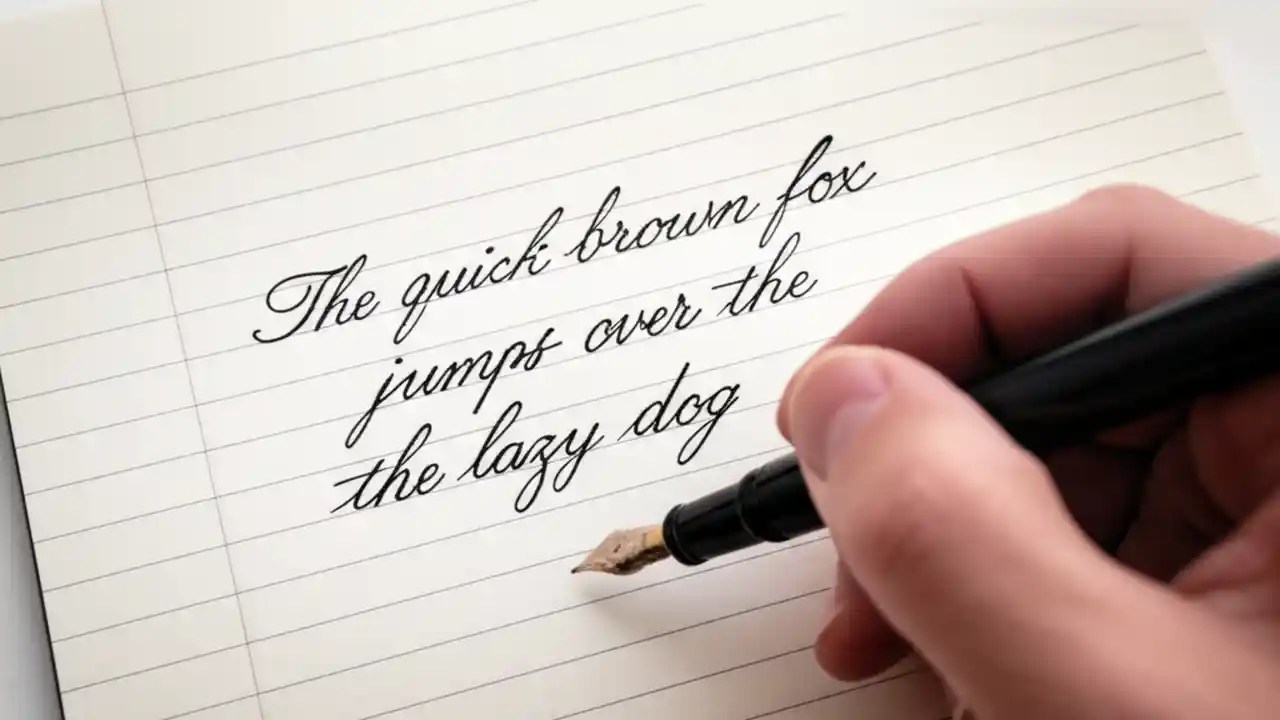 The quick brown fox
jumps over the
the lazy dog